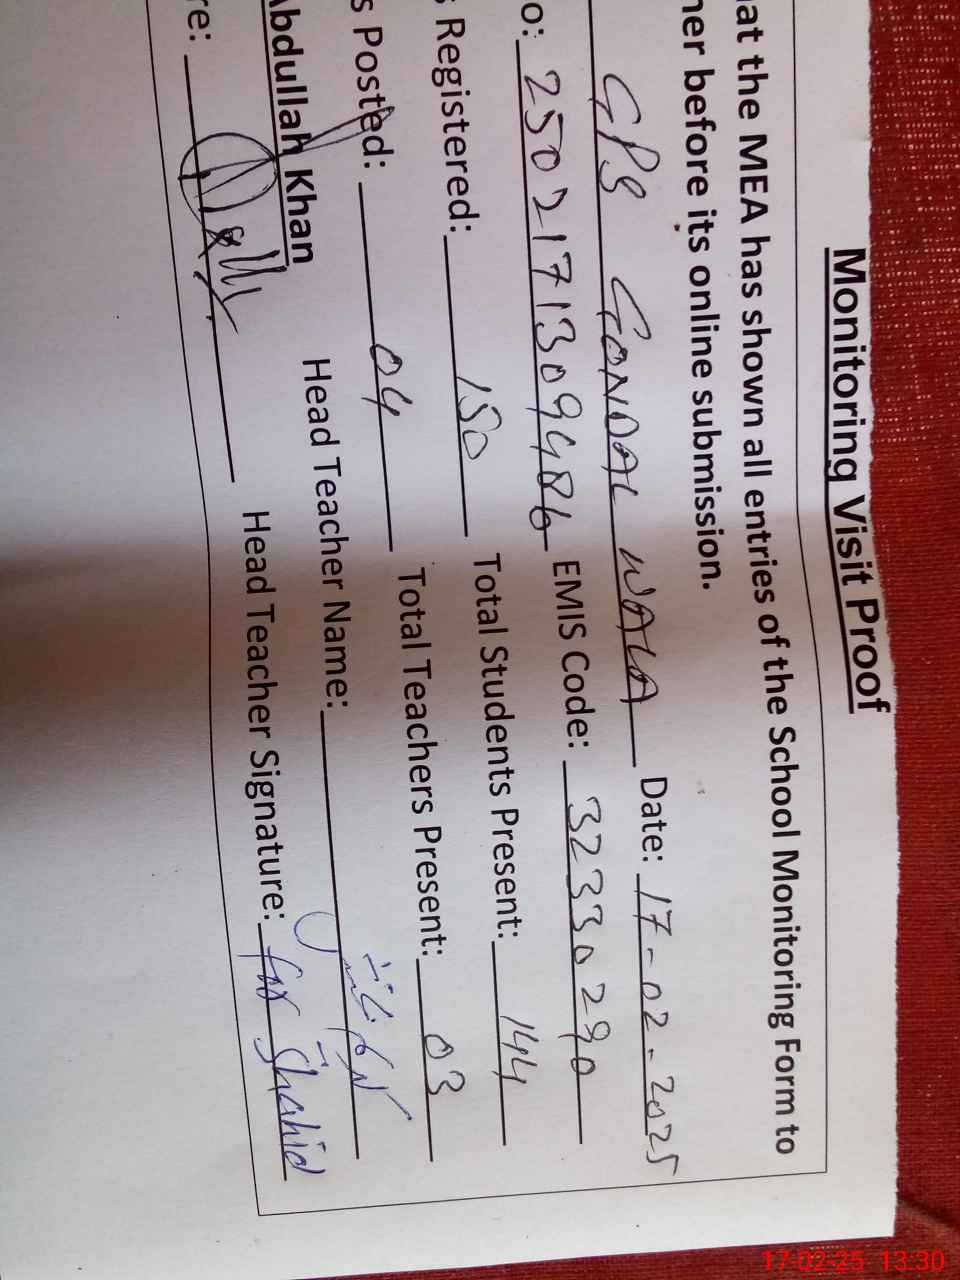 Monitoring Visit Proof
hat the MEA has shown all entries of the School Monitoring Form to
her before its online submission.
GPS GONDAL WALA Date: 17-02-2025
o: 2502171309486 EMIS Code: 32330290
s Registered: 150 Total Students Present: 144
s Posted: 04 Total Teachers Present: 03
Abdullah Khan Head Teacher Name:
re: Head Teacher Signature: for Shahid
17-02-25 13:30